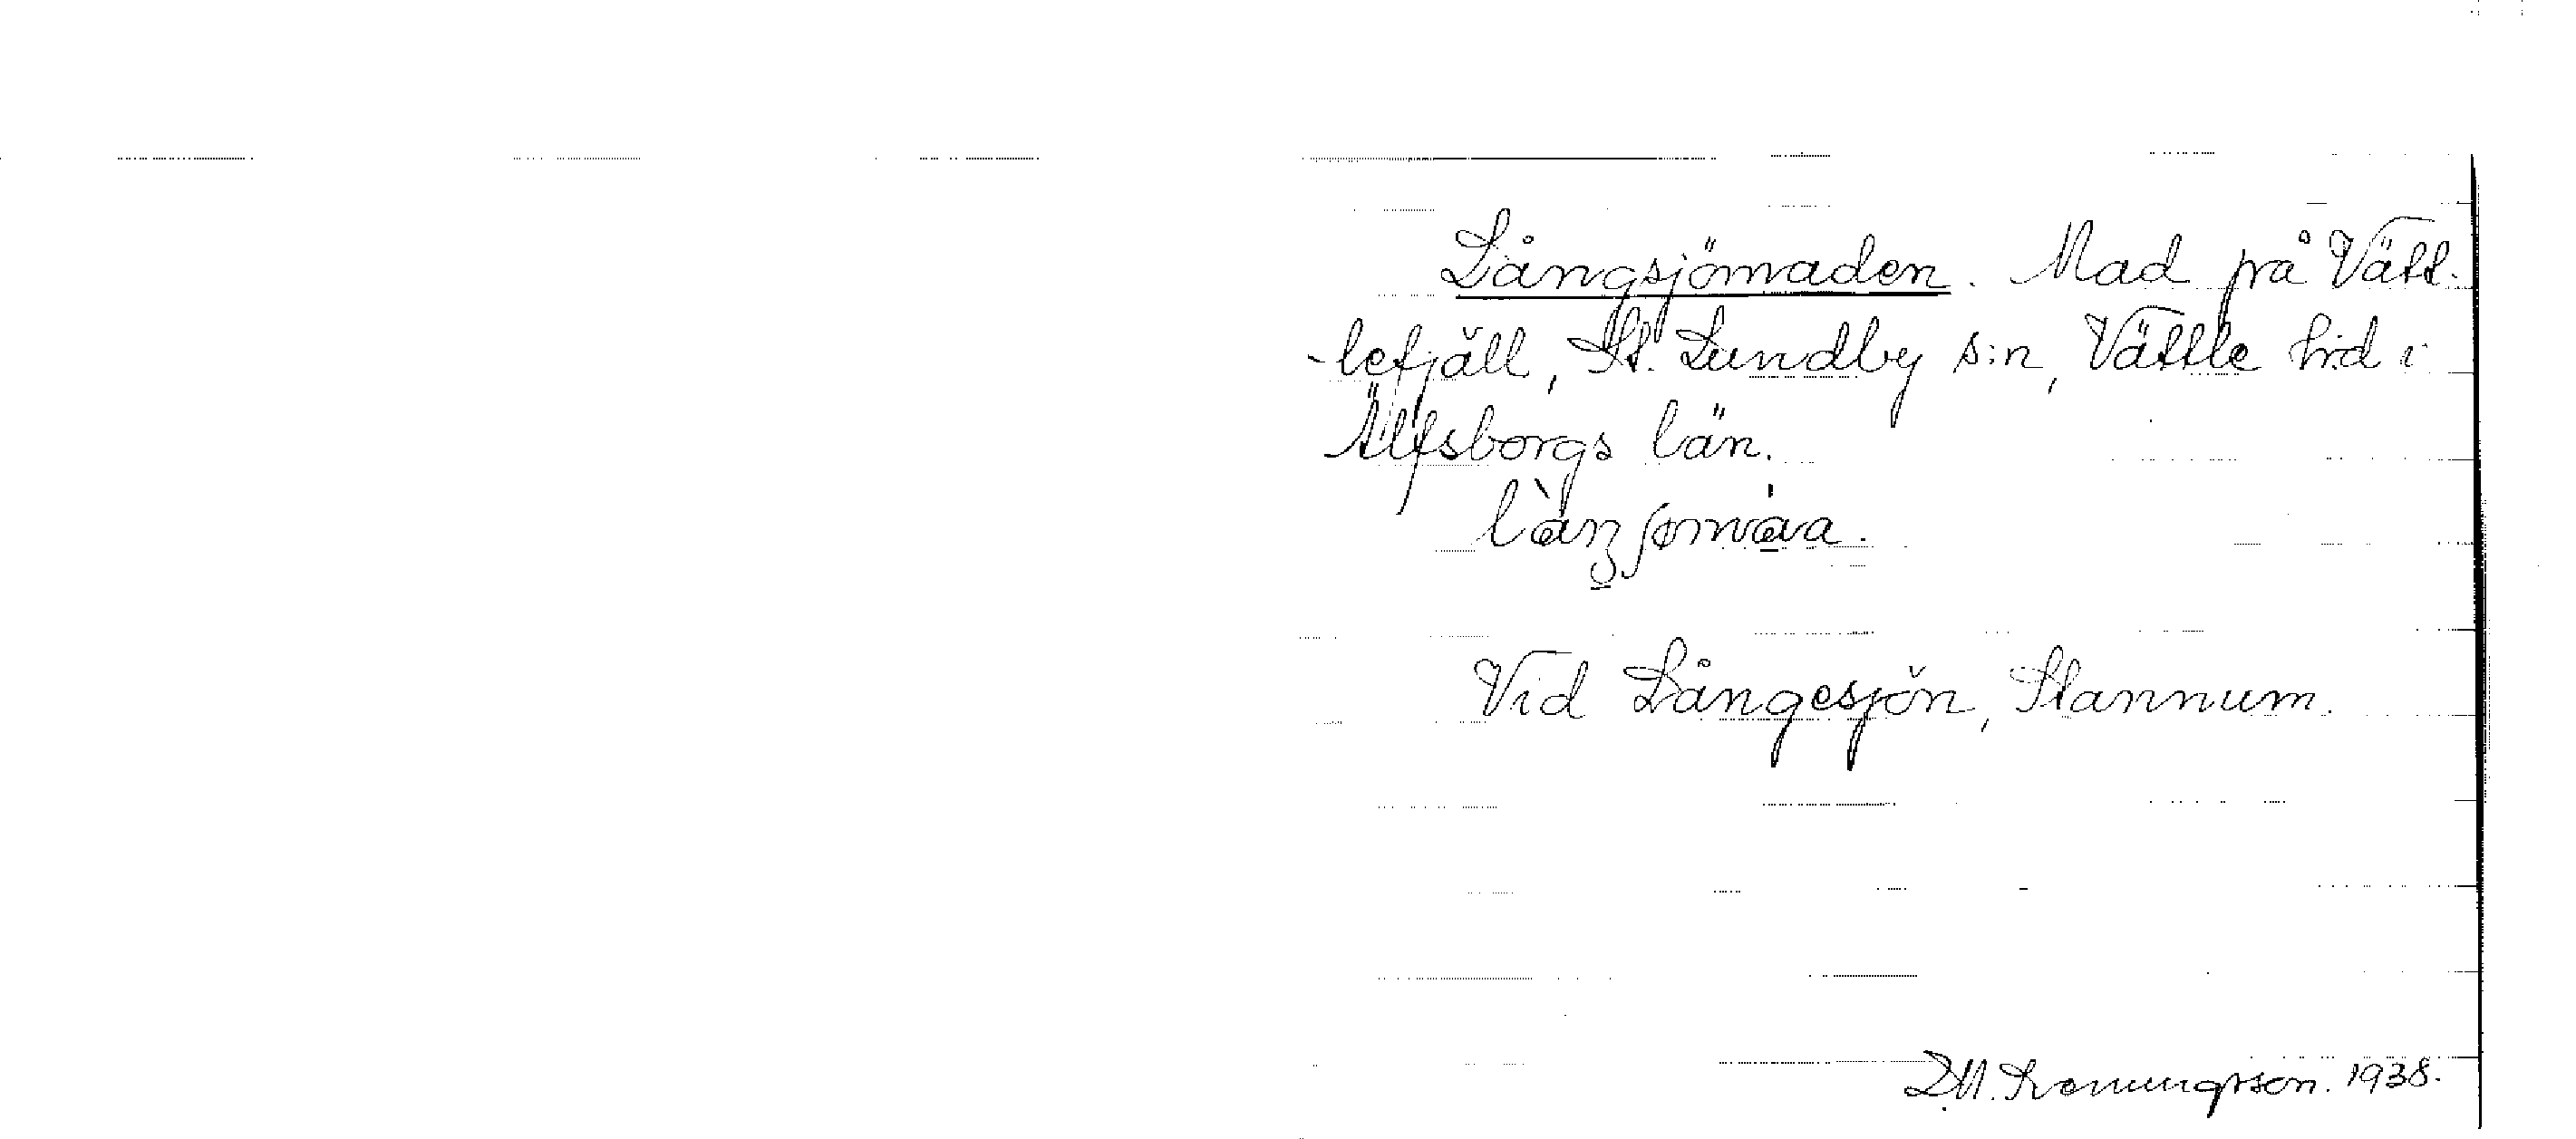 Långsjömaden. Mad på Vätt-
-lefjäll, St. Lundby s:n, Vättle hd i
Älfsborgs län.
Vid Långesjön, Stannum.
1938.